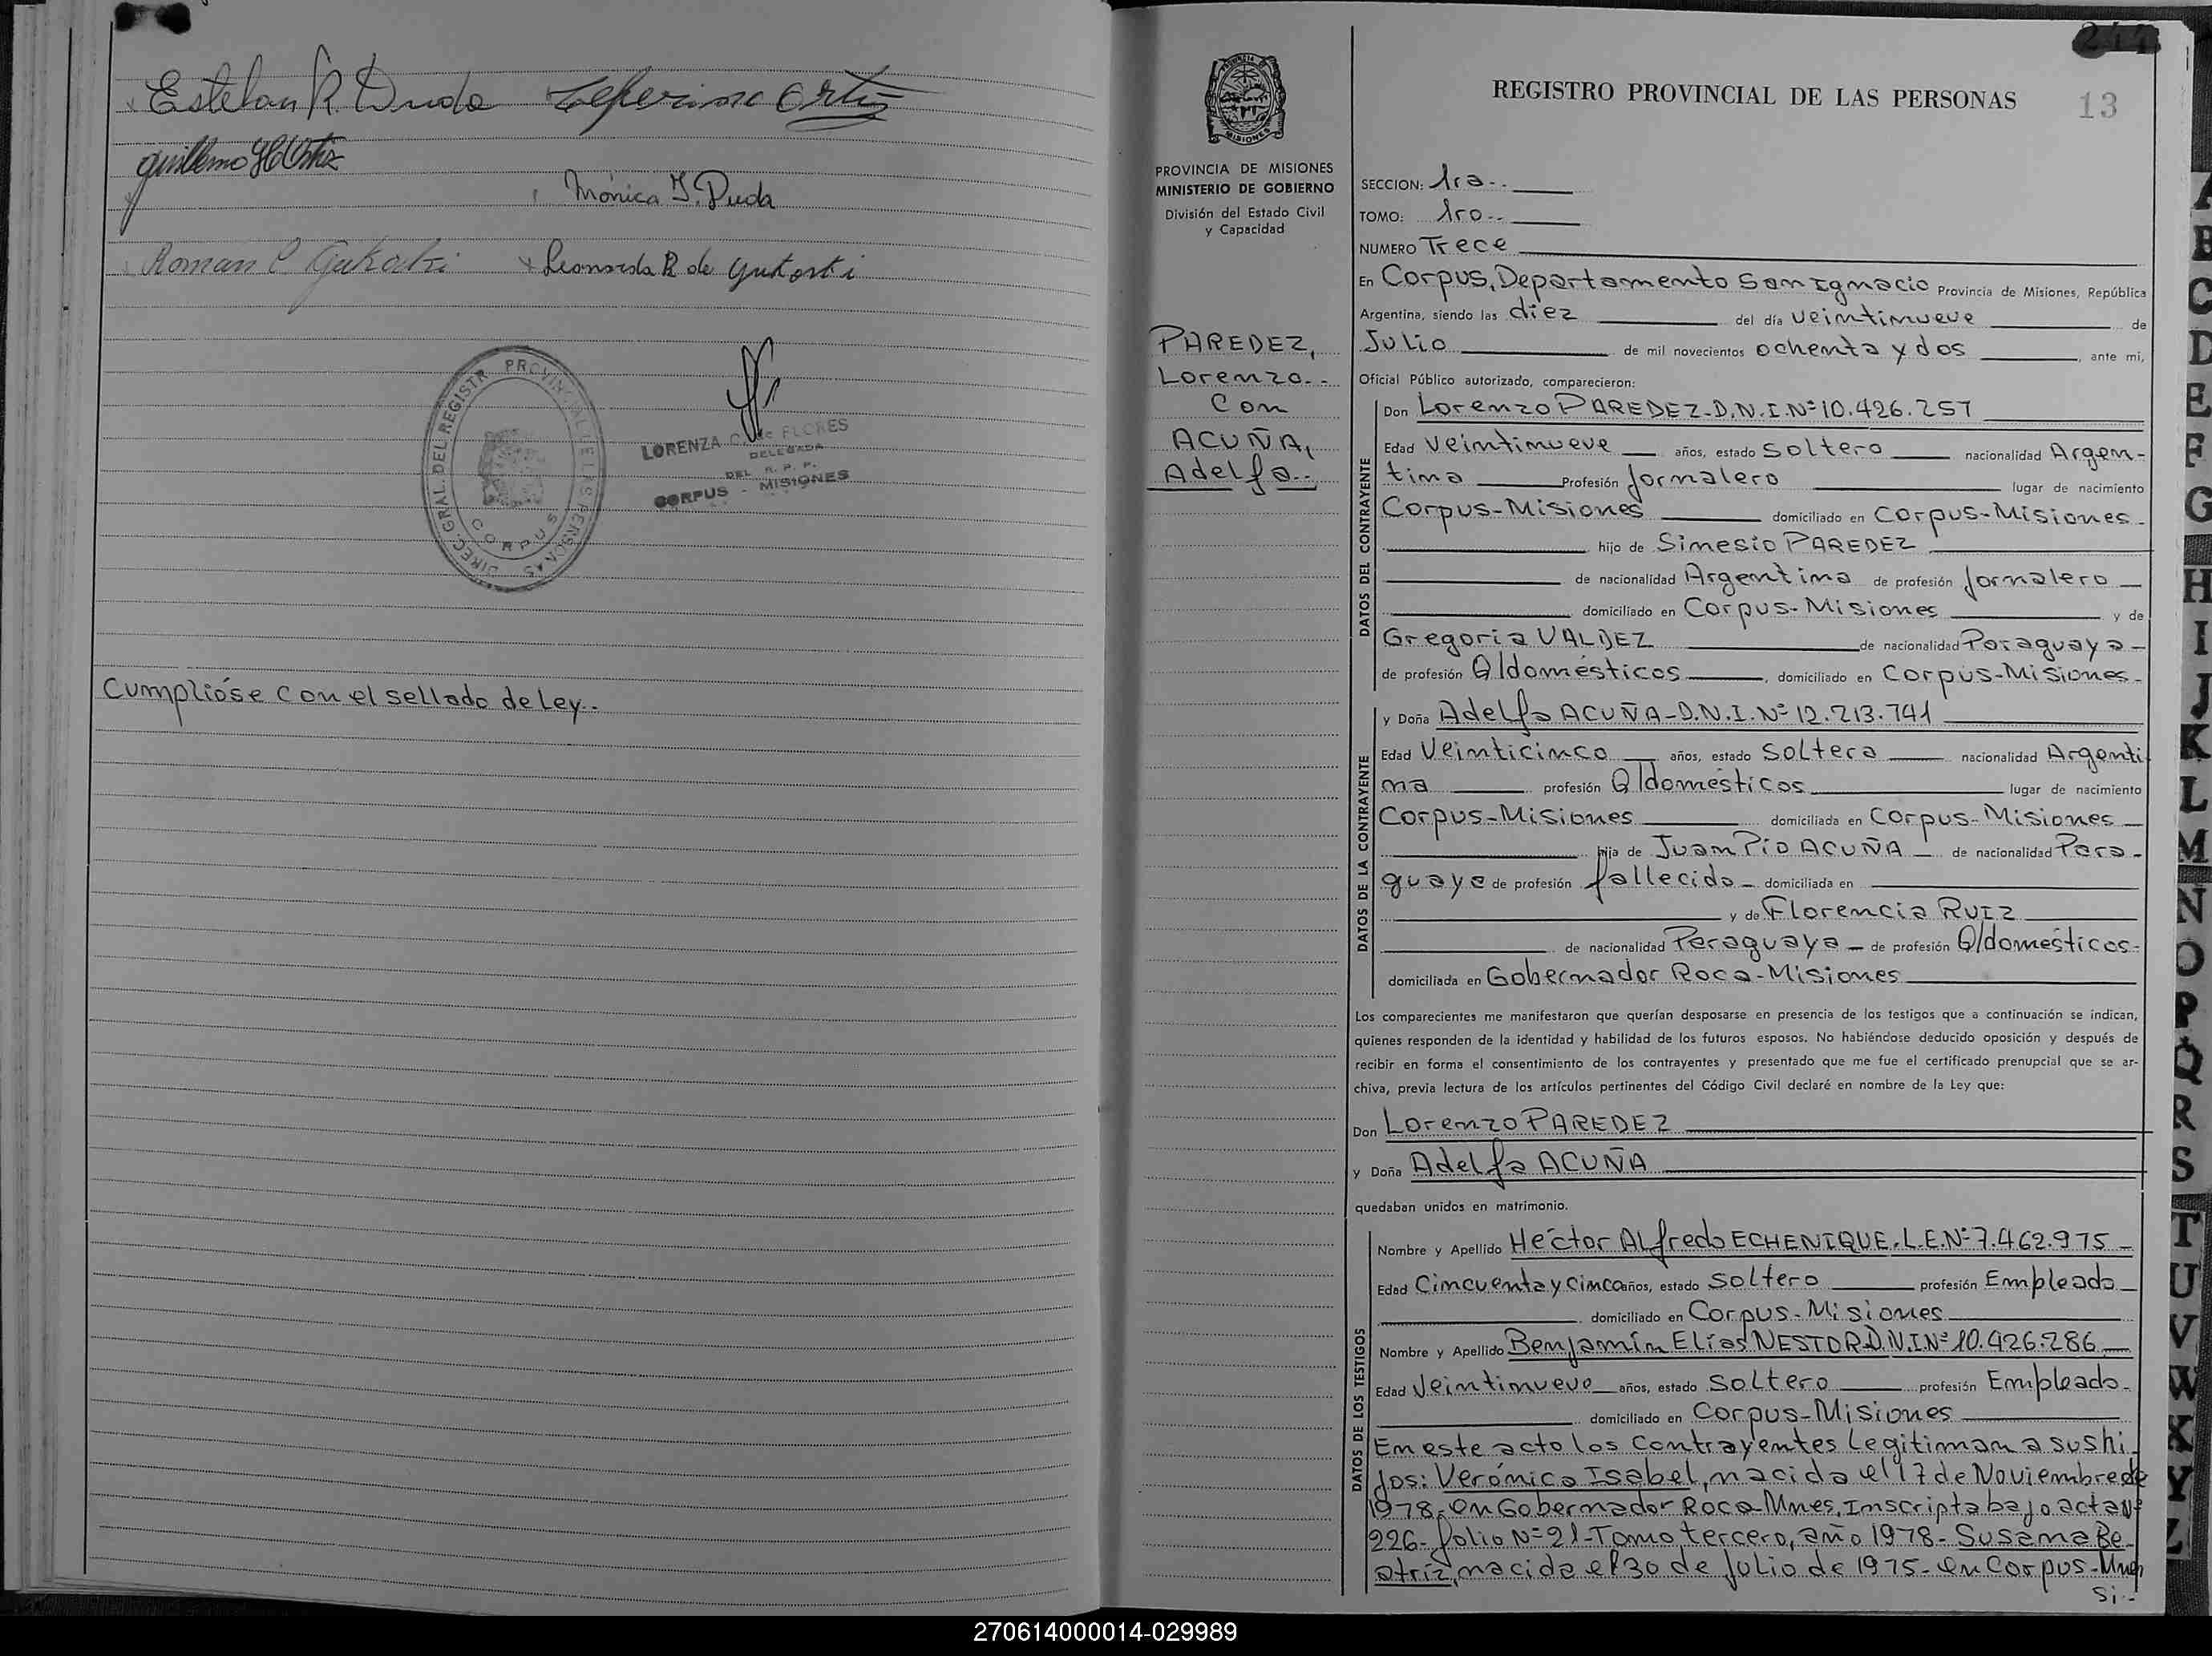 Esteban R. Duda Zeferino Ortiz
Guillermo H Ortiz
Mónica J. Duda
Roman C Gutoski Leonarda R de Gutoski
DIREC. GRAL. DEL REGISTR. PROVINCIAL DE LAS PERSONAS
CORPUS
LORENZA C. de FLORES
DELEGADA
DEL R. P. P.
CORPUS - MISIONES
Cumplióse con el sellado de Ley.-
PROVINCIA DE MISIONES
MINISTERIO DE GOBIERNO
División del Estado Civil
y Capacidad
PAREDEZ,
Lorenzo.-
Con
ACUÑA,
Adelfa.-
REGISTRO PROVINCIAL DE LAS PERSONAS 13
SECCION: 1ra.-
TOMO: 1ro.-
NUMERO Trece
En Corpus, Departamento San Ignacio Provincia de Misiones, República
Argentina, siendo las diez del día veintinueve de
Julio de mil novecientos ochenta y dos, ante mi,
Oficial Público autorizado, comparecieron:
DATOS DEL CONTRAYENTE
Don Lorenzo PAREDEZ-D.N.I.Nº10.426.257
Edad veintinueve años, estado soltero nacionalidad Argen-
tina Profesión jornalero lugar de nacimiento
Corpus-Misiones domiciliado en Corpus-Misiones-
hijo de Simesio PAREDEZ
de nacionalidad Argentina de profesión jornalero
domiciliado en Corpus-Misiones y de
Gregoria VALDEZ de nacionalidad Paraguaya-
de profesión Q/domésticos, domiciliado en Corpus-Misiones-
DATOS DE LA CONTRAYENTE
y Doña Adelfa ACUÑA-D.N.I.Nº12.213.741
Edad Veinticinco años, estado soltera nacionalidad Argenti
na profesión Q/domésticos lugar de nacimiento
Corpus-Misiones domiciliada en Corpus-Misiones
hija de Juan Pío ACUÑA de nacionalidad Para-
guaya de profesión fallecido- domiciliada en
y de Florencia RUIZ
de nacionalidad Paraguaya- de profesión Q/domésticos-
domiciliada en Gobernador Roca-Misiones
Los comparecientes me manifestaron que querían desposarse en presencia de los testigos que a continuación se indican,
quienes responden de la identidad y habilidad de los futuros esposos. No habiéndose deducido oposición y después de
recibir en forma el consentimiento de los contrayentes y presentado que me fue el certificado prenupcial que se ar-
chiva, previa lectura de los artículos pertinentes del Código Civil declaré en nombre de la Ley que:
Don Lorenzo PAREDEZ
y Doña Adelfa ACUÑA
quedaban unidos en matrimonio.
DATOS DE LOS TESTIGOS
Nombre y Apellido Héctor Alfredo ECHENIQUE.L.E.Nº7.462.975-
Edad Cincuenta y cinco años, estado soltero profesión Empleado
domiciliado en Corpus-Misiones
Nombre y Apellido Benjamín Elías NESTOR D.N.I.Nº10.426.286
Edad Veintinueve años, estado soltero profesión Empleado-
domiciliado en Corpus-Misiones
En este acto los contrayentes Legitiman a sus hi-
jos: Verónica Isabel, nacida el 17 de Noviembre de
1978-en Gobernador Roca-Mnes, Inscripta bajo acta Nº
226-folio Nº21-Tomo tercero, año 1978-Susana Be-
atríz, nacida el 30 de julio de 1975-en Corpus-Mnes
si-
A
B
C
D
E
F
G
H
I
J
K
L
M
N
O
P
Q
R
S
T
U
V
W
X
Y
Z
270614000014-029989